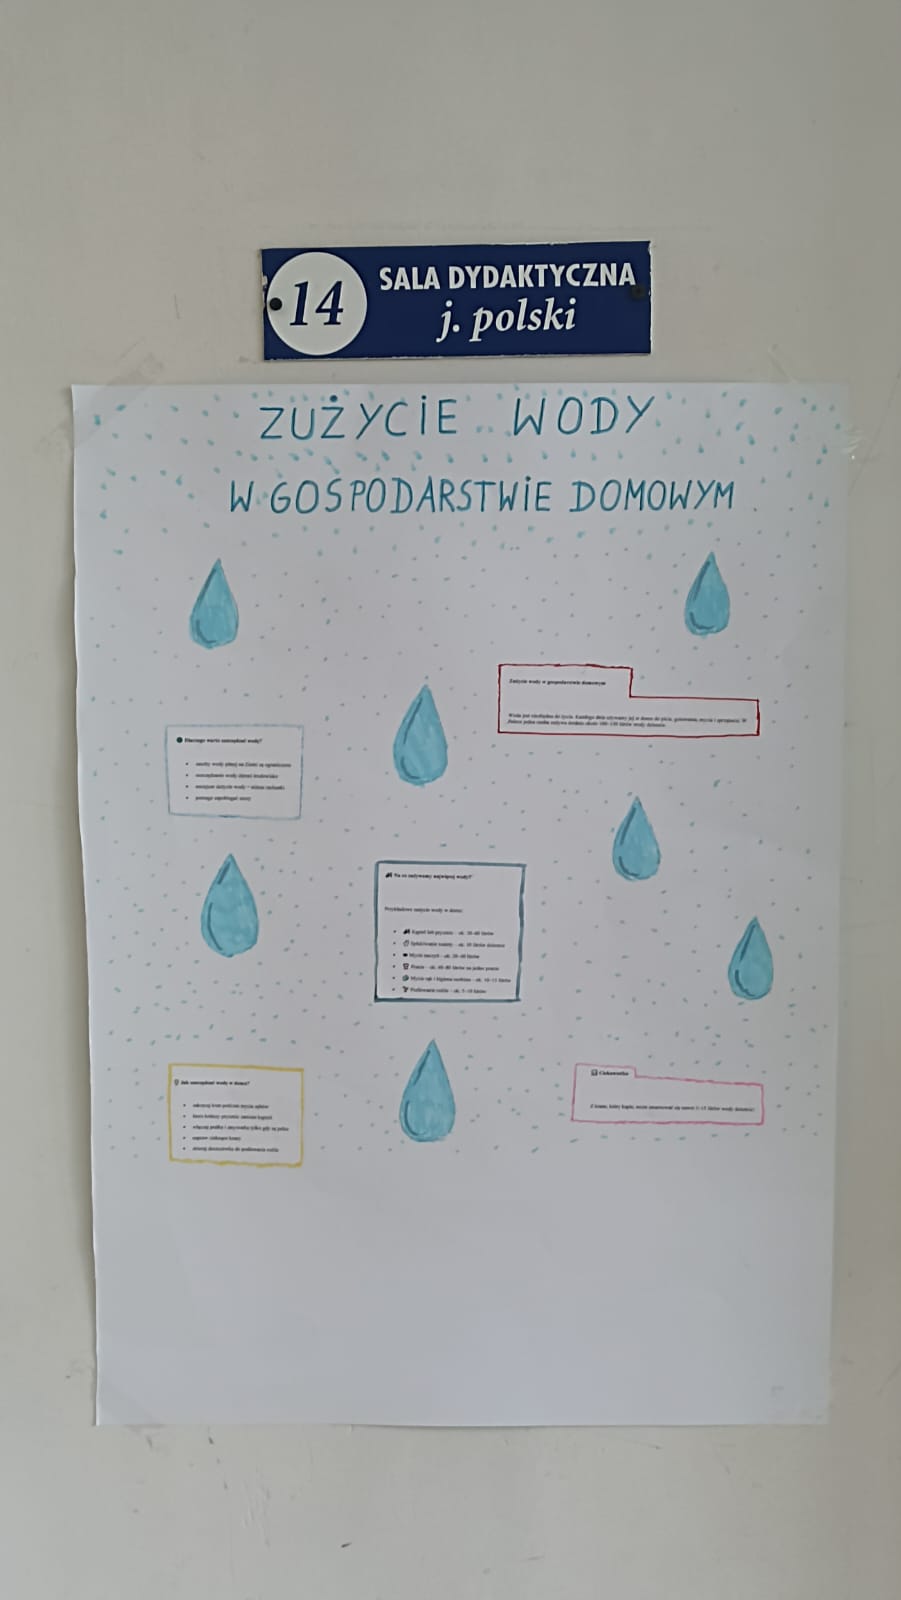 14
SALA DYDAKTYCZNA
j. polski
ZUŻYCIE WODY
W GOSPODARSTWIE DOMOWYM
Zużycie wody w gospodarstwie domowym
Woda jest niezbędna do życia. Każdego dnia używamy jej w domu do picia, gotowania, mycia i sprzątania. W
Polsce jedna osoba zużywa średnio około 100–150 litrów wody dziennie.
Dlaczego warto oszczędzać wodę?
• zasoby wody pitnej na Ziemi są ograniczone
• oszczędzanie wody chroni środowisko
• mniejsze zużycie wody = niższe rachunki
• pomaga zapobiegać suszy
Na co zużywamy najwięcej wody?
Przykładowe zużycie wody w domu:
• Kąpiel lub prysznic – ok.
• Spłukiwanie toalety – ok. litrów dziennie
• Mycie naczyń – ok. litrów
• Pranie – ok. litrów na jedno pranie
• Mycie rąk i higiena osobista – ok. 10–15 litrów
• Podlewanie roślin – ok. 5–10 litrów
Jak oszczędzać wodę w domu?
• zakręcaj kran podczas mycia zębów
• bierz krótszy prysznic zamiast kąpieli
• włączaj pralkę i zmywarkę tylko gdy są pełne
• napraw cieknące krany
• zbieraj deszczówkę do podlewania roślin
Ciekawostka
Z kranu, który kapie, może zmarnować się nawet litrów wody dziennie!